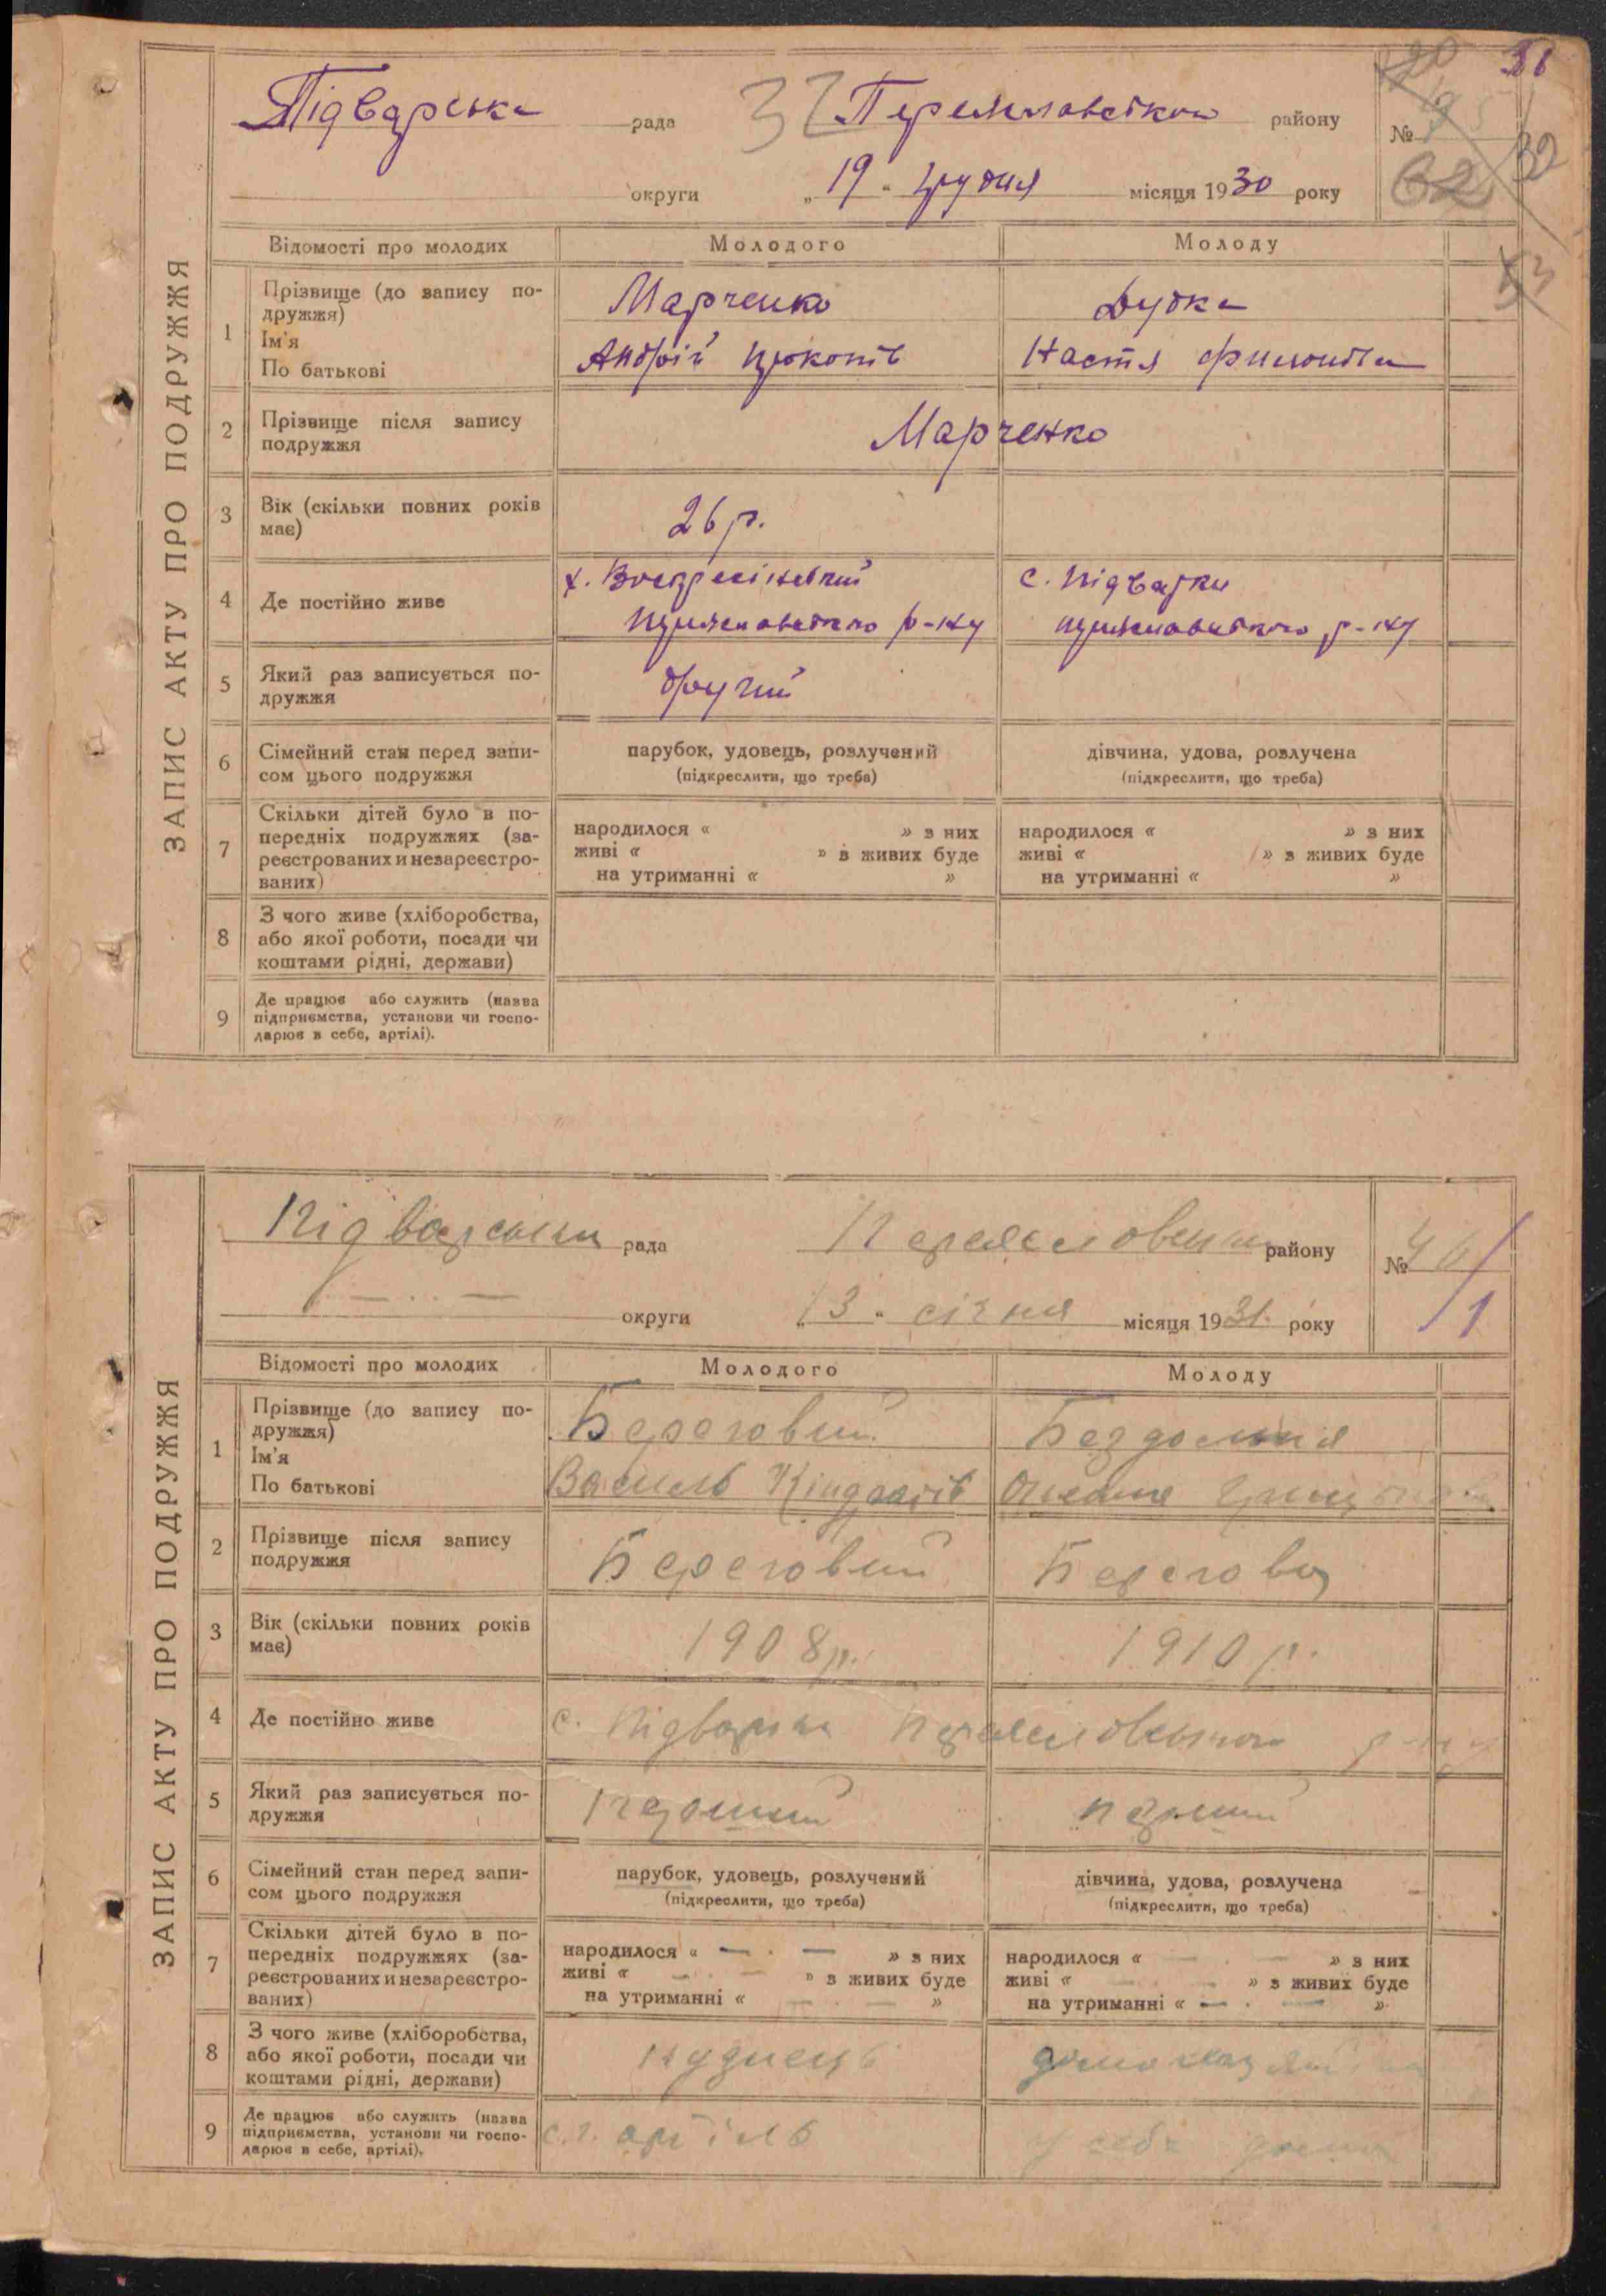 31
Підварська рада 32 Переяславського району №
32
округи „19“ грудня місяця 1930 року 62
53
ЗАПИС АКТУ ПРО ПОДРУЖЖЯ
Відомості про молодих Молодого Молоду
1 Прізвище (до запису по-
дружжя) Марченко Дудка
Ім'я
По батькові Андрій Прокопів Настя Филонівна
2 Прізвище після запису
подружжя Марченко
3 Вік (скільки повних років
має) 26 р.
4 Де постійно живе х. Воскресінський с. Підварки
Переяславського р-ну Переяславського р-ну
5 Який раз записується по-
дружжя другий
6 Сімейний стан перед запи-
сом цього подружжя
парубок, удовець, розлучений дівчина, удова, розлучена
(підкреслити, що треба) (підкреслити, що треба)
7 Скільки дітей було в по-
передніх подружжях (за-
реєстрованих и незареєстро-
ваних)
народилося « » з них народилося « » з них
живі « » з живих буде живі « » з живих буде
на утриманні « » на утриманні « »
8 З чого живе (хліборобства,
або якої роботи, посади чи
коштами рідні, держави)
9 Де працює або служить (назва
підприємства, установи чи госпо-
дарює в себе, артілі).
Підварська рада Переяславського району № 46
округи „13“ січня місяця 1931. року 1
ЗАПИС АКТУ ПРО ПОДРУЖЖЯ
Відомості про молодих Молодого Молоду
1 Прізвище (до запису по-
дружжя) Береговий Бездомня
Ім'я
По батькові Василь Кіндратів
2 Прізвище після запису
подружжя Береговий Берегова
3 Вік (скільки повних років
має) 1908р. 1910 р.
4 Де постійно живе с. Підварки Переяславського р-ну
5 Який раз записується по-
дружжя перший перший
6 Сімейний стан перед запи-
сом цього подружжя
парубок, удовець, розлучений дівчина, удова, розлучена
(підкреслити, що треба) (підкреслити, що треба)
7 Скільки дітей було в по-
передніх подружжях (за-
реєстрованих и незареєстро-
ваних)
народилося « — . — » з них народилося « — — » з них
живі « — . — » з живих буде живі « — — » з живих буде
на утриманні « — . — » на утриманні « — . — »
8 З чого живе (хліборобства,
або якої роботи, посади чи
коштами рідні, держави) кузнець домохазяйка
9 Де працює або служить (назва
підприємства, установи чи госпо-
дарює в себе, артілі). с.г. артіль у себе дома